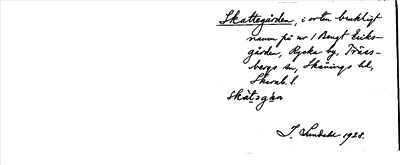 Skattegården, i orten brukligt
namn på nr 1 Bengt Eriks-
gården, Rycke by, Träss-
bergs sn, Skånings hd,
Skarab. l.
skàtəgàn
J. Sundahl 1928.